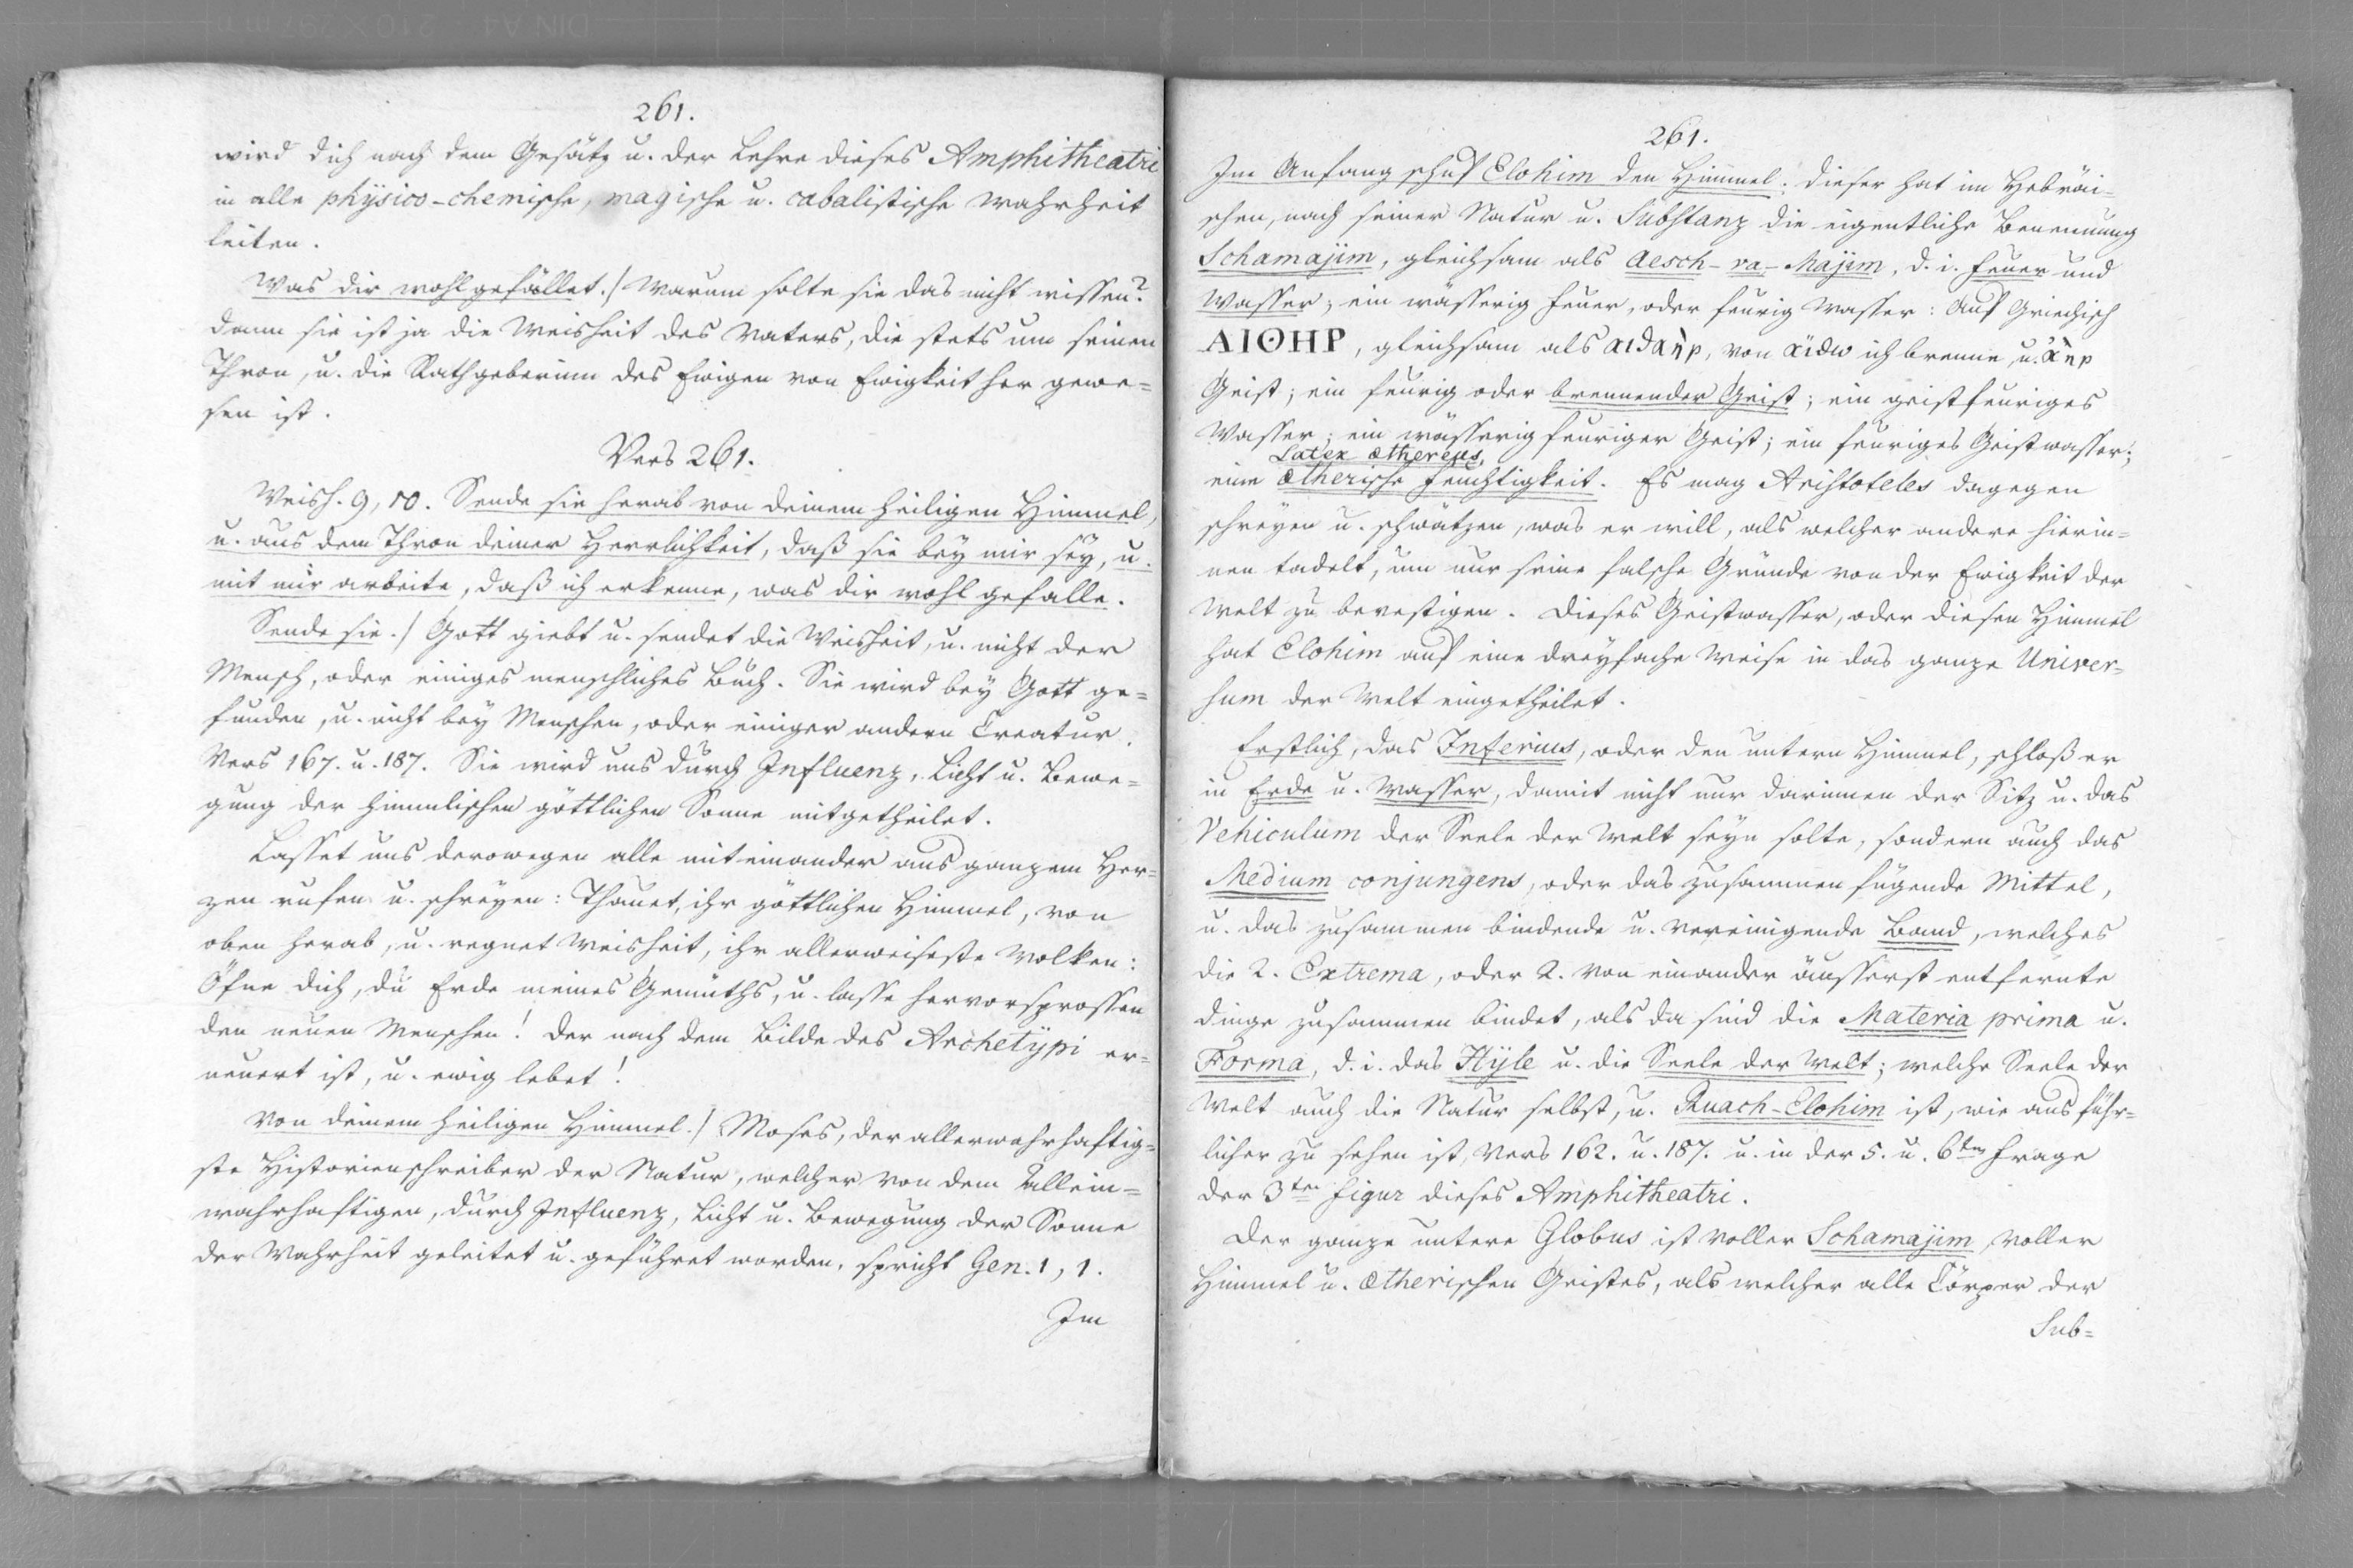 261.
wird dich nach dem Gesätz u. der Lehre dieses Amphitheatri
in alle physico-chemische, magische u. cabalistische Wahrheit
leiten.
Was dir wohlgefället./ Warum solte sie das nicht wissen?
dann sie ist ja die Weisheit des Vaters, die stets um seinen
Thron, u. die Rathgeberinn des Ewigen von Ewigkeit her gewe=
sen ist.
Vers 261.
Weish. 9, 10. Sende sie herab von deinem heiligen Himmel,
u. aus dem Thron deiner Herrlichkeit, daß sie bey mir sey, u.
mit mir arbeite, daß ich erkenne, was dir wohl gefalle.
Sende sie./ Gott giebt u. sendet die Weisheit, u. nicht der
Mensch, oder einiges menschliches Buch. Sie wird bey Gott ge=
funden, u. nicht bey Menschen, oder einiger andern Creatur.
Vers 167. u. 187. Sie wird uns durch Influenz, Licht u. Bewe=
gung der himmlischen göttlichen Sonne mitgetheilet.
Lasset uns derowegen alle miteinander aus ganzem Her=
zen rufen u. schreyen: Thauet, ihr göttlichen Himmel, von
oben herab, u. regnet Weisheit, ihr allerweiseste Wolken:
Öfne dich, du Erde meines Gemüths, u. lasse hervorsprossen
den neuen Menschen! der nach dem Bilde des Archetypi er=
neuert ist, u. ewig lebet!
Von deinem heiligen Himmel./ Moses, der allerwahrhaftig=
ste Historienschreiber der Natur, welcher von dem Allein=
wahrhaftigen, durch Influenz, Licht u. Bewegung der Sonne
der Wahrheit geleitet u. geführet worden, spricht Gen. 1, 1.
Im
261.
Im Anfang schuf Elohim den Himmel: dieser hat im Hebräi=
schen, nach seiner Natur u. Substanz die eigentliche Benennung
Schamajim, gleichsam als Aesch-va-Majim, d. i. Feuer und
Wasser; ein wässerig Feuer, oder feurig Wasser: Auf Griechisch
ΑΙΘΗΡ, gleichsam als αιθαὴρ, von αἴθω ich brenne, u. ἀὴρ
Geist; ein feurig oder brennender Geist; ein geistfeuriges
Wasser; ein wässerig feuriger Geist; ein feuriges Geistwasser;
Latex æthereus,
eine ætherische Feuchtigkeit. Es mag Aristoteles dagegen
schreyen u. schwätzen, was er will, als welcher andere hierin=
nen tadelt, um nur seine falsche Gründe von der Ewigkeit der
Welt zu bevestigen. Dieses Geistwasser, oder diesen Himmel
hat Elohim auf eine dreyfache Weise in das ganze Univer=
sum der Welt eingetheilet.
Erstlich, das Inferius, oder den untern Himmel, schloß er
in Erde u. Wasser, damit nicht nur darinnen der Sitz u. das
Vehiculum der Seele der Welt seyn solte, sondern auch das
Medium conjungens, oder das zusammen fügende Mittel,
u. das zusammen bindende u. vereinigende Band, welches
die 2. Extrema, oder 2. von einander äusserst entfernte
Dinge zusammen bindet, als da sind die Materia prima u.
Forma, d. i. das Hyle u. die Seele der Welt; welche Seele der
Welt auch die Natur selbst, u. Ruach-Elohim ist, wie ausführ=
licher zu sehen ist, Vers 162. u. 187. u. in der 5. u. 6ten Frage
der 3ten Figur dieses Amphitheatri.
Der ganze untere Globus ist voller Schamajim, voller
Himmel u. ætherischen Geistes, als welcher alle Cörper der
Sub=